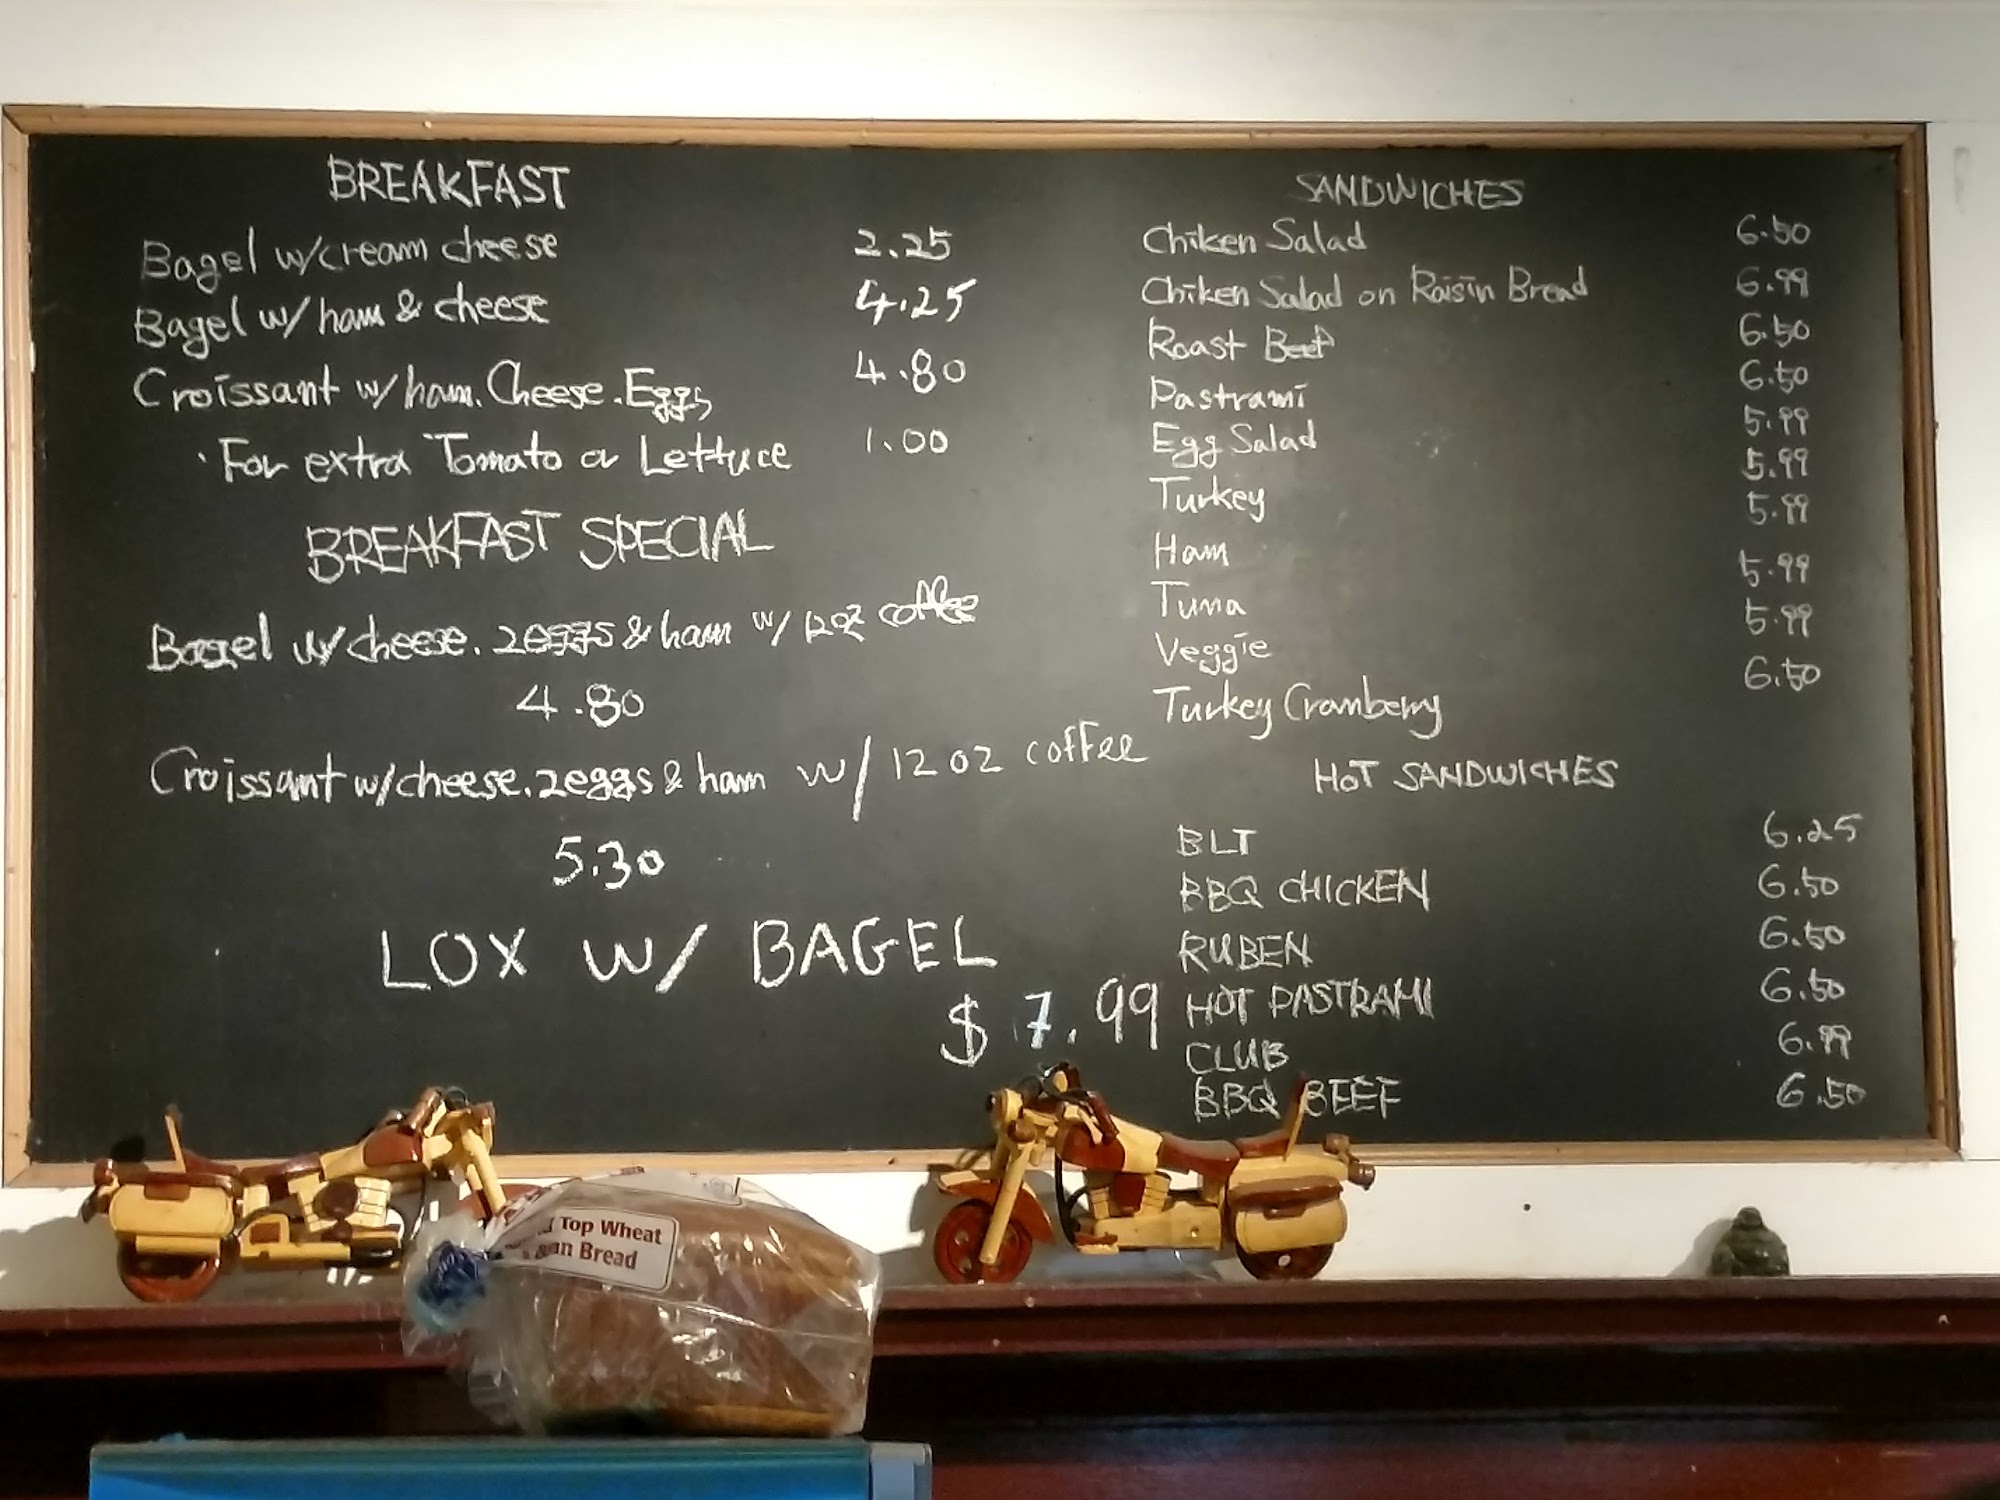 BREAKFAST
Bagel w/cream cheese 2.25
Bagel w/ ham & cheese 4.25
Croissant w/ham. Cheese. Eggs 4.80
· For extra Tomato or Lettuce 1.00
BREAKFAST SPECIAL
Bagel w/ cheese. 2eggs & ham w/ 12oz coffee
4.80
Croissant w/cheese. 2eggs & ham w/ 12 oz coffee
5.30
LOX W/ BAGEL
$7.99
SANDWICHES
Chiken Salad 6.50
Chiken Salad on Raisin Bread 6.99
Roast Beef 6.50
Pastrami 6.50
Egg Salad 5.99
Turkey 5.99
Ham 5.99
Tuna 5.99
Veggie 5.99
Turkey Cranberry 6.50
HOT SANDWICHES
BLT 6.25
BBQ CHICKEN 6.50
RUBEN 6.50
HOT PASTRAMI 6.50
CLUB 6.99
BBQ BEEF 6.50
Top Wheat
Bread